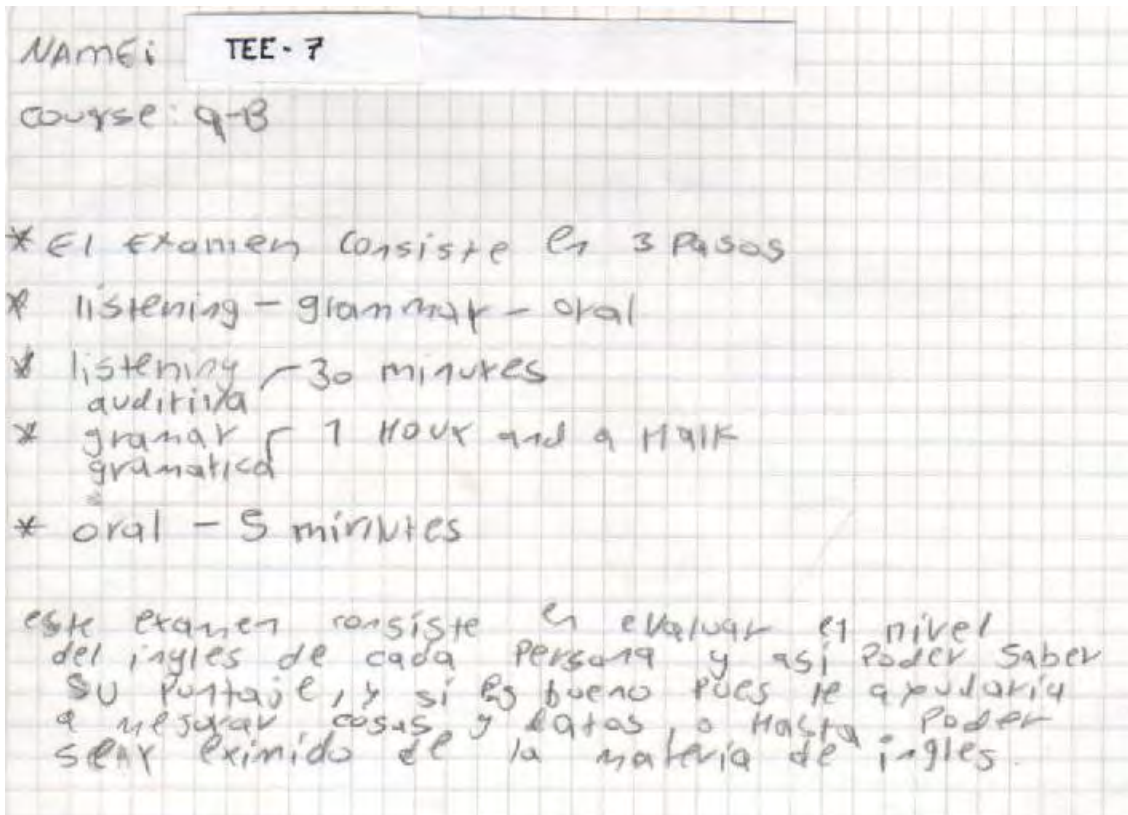 NAME: TEE - 7
course: 9-B
* El Examen consiste en 3 Pasos
* listening - grammar - oral
* listening - 30 minutes
auditiva
* gramar - 1 Hour and a Half
gramatica
* oral - 5 minutes
este examen consiste en evaluar el nivel
del ingles de cada Persona y asi Poder Saber
su Puntaje, y si es bueno Pues le ayudaria
a mejorar cosas y datos, o Hasta Poder
ser eximido de la materia de ingles.